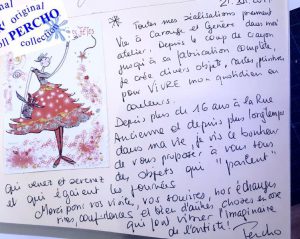 original
PERCHO
collection
* Toutes mes réalisations prennent
Vie à Carouge et Genève dans mon
atelier. Depuis le coup de crayon
jusqu'à sa fabrication complète,
je crée divers objets, cartes, peintures
pour VIVRE mon quotidien en
couleurs.
Depuis plus de 16 ans à la Rue
Ancienne et depuis plus longtemps
dans ma vie, je vis ce bonheur
de vous proposer à vous tous
des objets qui "parlent"
Qui venez et
et qui égaient les journées
Merci pour vos visites, vos sourires, nos échanges,
rires, confidences et bien d'autres choses encore
qui font vibrer l'imaginaire
de l'artiste!
Percho